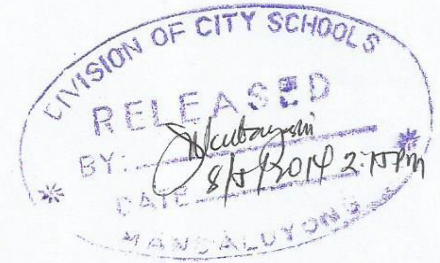 DIVISION OF CITY SCHOOLS
RELEASED
BY:
DATE 2:15 PM
MANDALUYONG